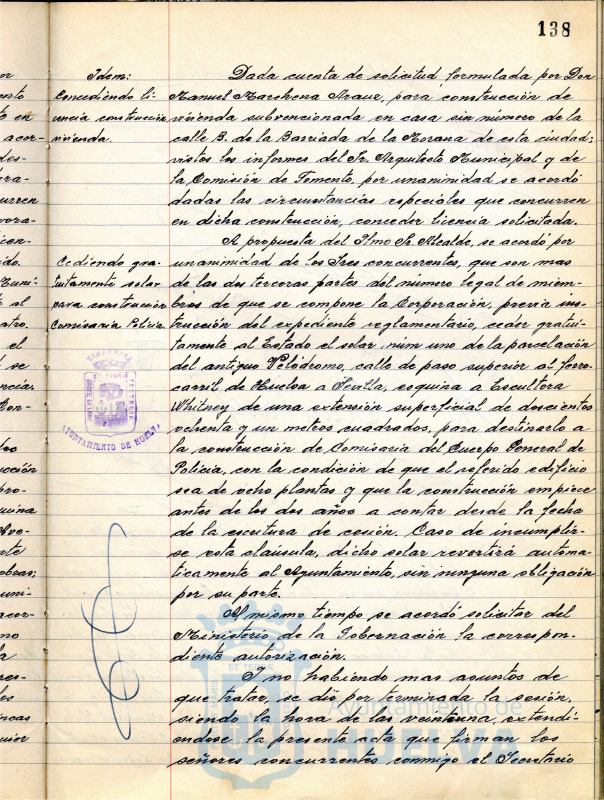 138
Idem:
Concediendo li-
cencia construcción
vivienda.
Dada cuenta de solicitud formulada por Don
Manuel Marchena Arauz, para construcción de
vivienda subvencionada en casa sin número de la
calle B. de la Barriada de la Morana de esta ciudad;
vistos los informes del Sr. Arquitecto Municipal y de
la Comisión de Fomento, por unanimidad se acordó
dadas las circunstancias especiales que concurren
en dicha construcción, conceder licencia solicitada.
Cediendo gra-
tuitamente solar
para construcción
Comisaría Policía.
A propuesta del Ilmo Sr. Alcalde, se acordó por
unanimidad de los Sres concurrentes, que son mas
de las dos terceras partes del numero legal de miem-
bros de que se compone la Corporación, previa ins-
trucción del expediente reglamentario, ceder gratui-
tamente al Estado el solar num uno de la parcelación
del antiguo Velódromo, calle de paso superior al ferro-
carril de Huelva a Sevilla, esquina a Escultora
Whitney de una extensión superficial de doscientos
ochenta y un metros cuadrados, para destinarlo a
la construcción de Comisaria del Cuerpo General de
Policia, con la condición de que el referido edificio
sea de ocho plantas y que la construcción empiece
antes de los dos años a contar desde la fecha
de la escritura de cesión. Caso de incumplir-
se esta cláusula, dicho solar revertirá automa-
ticamente al Ayuntamiento, sin ninguna obligación
por su parte.
Al mismo tiempo se acordó solicitar del
Ministerio de la Gobernación la correspon-
diente autorización.
Y no habiendo mas asuntos de
que tratar, se dió por terminada la sesión,
siendo la hora de las veintiuna, extendi-
endose la presente acta que firman los
señores concurrentes conmigo el Secretario
AYUNTAMIENTO DE HUELVA
Ayuntamiento de
HUELVA